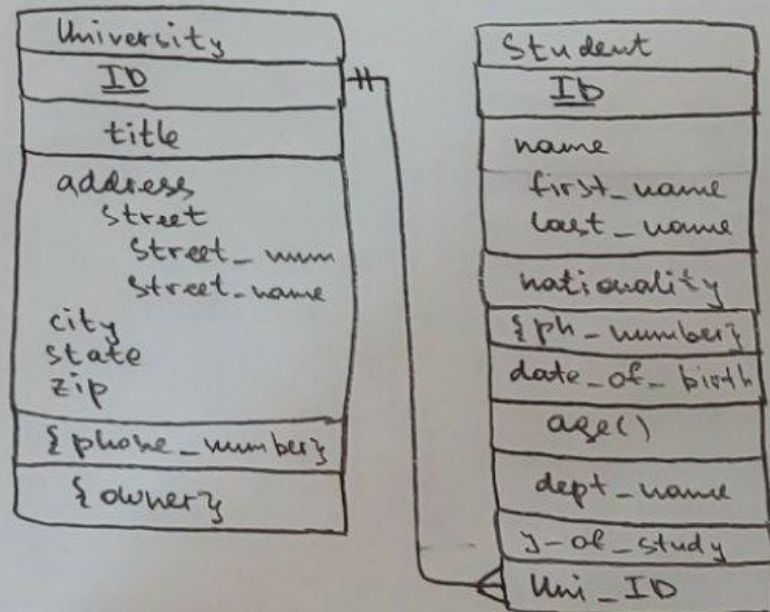 University
ID
title
address
street
street_num
street_name
city
state
zip
{phone_number}
{owner}
Student
ID
name
first_name
last_name
nationality
{ph_number}
date_of_birth
age()
dept_name
y_of_study
Uni_ID